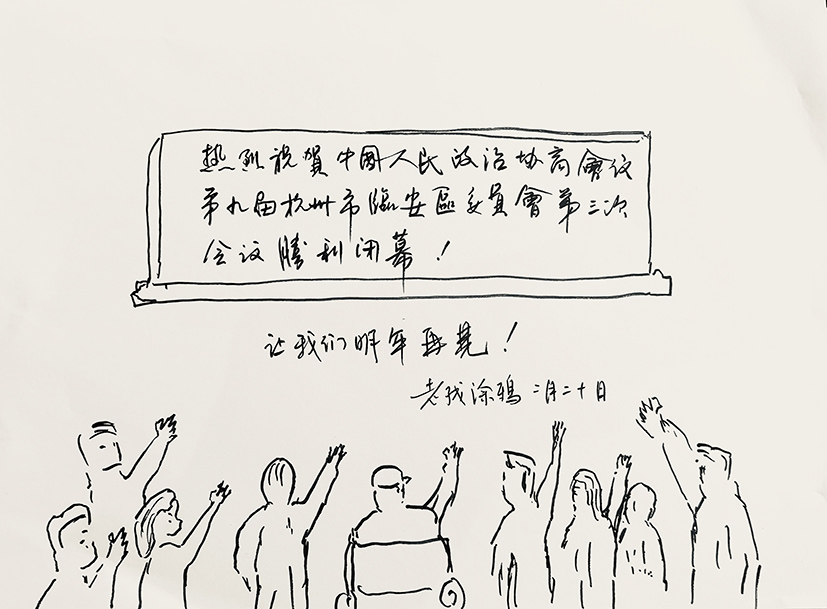 热烈祝賀中國人民政治协商會议
第九届杭州市臨安區委員會第三次
会议勝利闭幕！
让我们明年再見！
老找涂鴉 二月二十日